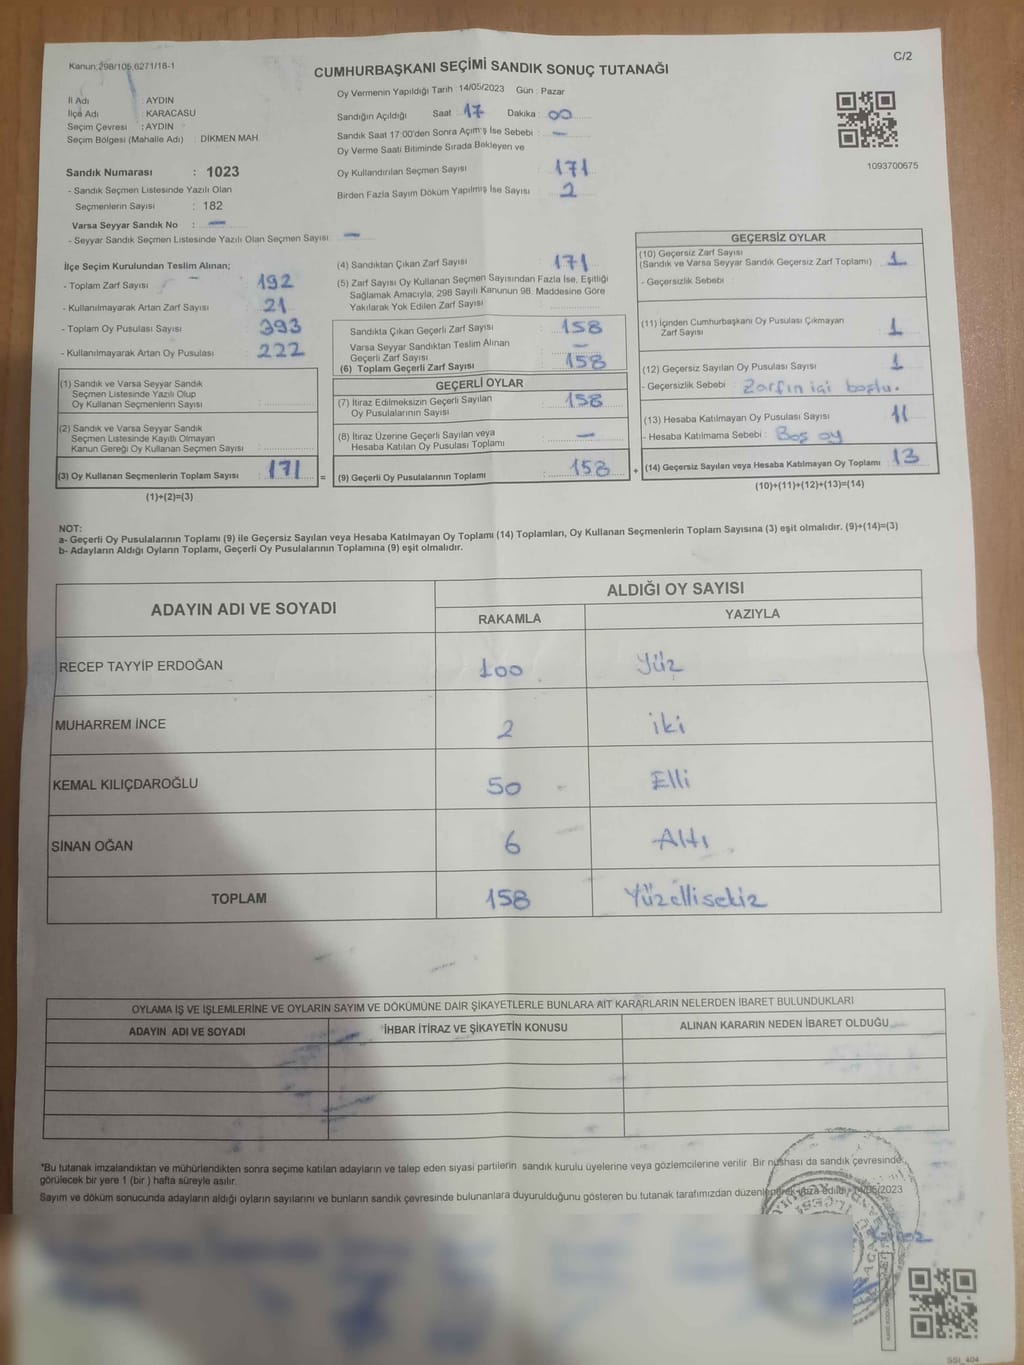 Kanun:298/105,6271/18-1
C/2
CUMHURBAŞKANI SEÇİMİ SANDIK SONUÇ TUTANAĞI
Oy Vermenin Yapıldığı Tarih 14/05/2023 Gün : Pazar
İl Adı : AYDIN
İlçe Adı : KARACASU
Seçim Çevresi : AYDIN
Seçim Bölgesi (Mahalle Adı) : DİKMEN MAH.
Sandığın Açıldığı Saat : 17 Dakika : 00
Sandık Saat 17:00'den Sonra Açım'ş İse Sebebi : —
Oy Verme Saati Bitiminde Sırada Bekleyen ve
Oy Kullandırılan Seçmen Sayısı 171
Birden Fazla Sayım Döküm Yapılmış İse Sayısı 2
1093700675
Sandık Numarası : 1023
- Sandık Seçmen Listesinde Yazılı Olan
Seçmenlerin Sayısı : 182
Varsa Seyyar Sandık No : —
- Seyyar Sandık Seçmen Listesinde Yazılı Olan Seçmen Sayısı : —
İlçe Seçim Kurulundan Teslim Alınan;
- Toplam Zarf Sayısı : 192
- Kullanılmayarak Artan Zarf Sayısı : 21
- Toplam Oy Pusulası Sayısı : 393
- Kullanılmayarak Artan Oy Pusulası : 222
(1) Sandık ve Varsa Seyyar Sandık
Seçmen Listesinde Yazılı Olup
Oy Kullanan Seçmenlerin Sayısı :
(2) Sandık ve Varsa Seyyar Sandık
Seçmen Listesinde Kayıtlı Olmayan
Kanun Gereği Oy Kullanan Seçmen Sayısı :
(3) Oy Kullanan Seçmenlerin Toplam Sayısı : 171 =
(1)+(2)=(3)
(4) Sandıktan Çıkan Zarf Sayısı 171
(5) Zarf Sayısı Oy Kullanan Seçmen Sayısından Fazla İse, Eşitliği
Sağlamak Amacıyla, 298 Sayılı Kanunun 98. Maddesine Göre
Yakılarak Yok Edilen Zarf Sayısı :
Sandıkta Çıkan Geçerli Zarf Sayısı : 158
Varsa Seyyar Sandıktan Teslim Alınan
Geçerli Zarf Sayısı : —
(6) Toplam Geçerli Zarf Sayısı : 158
GEÇERLİ OYLAR
(7) İtiraz Edilmeksizin Geçerli Sayılan
Oy Pusulalarının Sayısı : 158
(8) İtiraz Üzerine Geçerli Sayılan veya
Hesaba Katılan Oy Pusulası Toplamı : —
(9) Geçerli Oy Pusulalarının Toplamı : 158 +
GEÇERSİZ OYLAR
(10) Geçersiz Zarf Sayısı
(Sandık ve Varsa Seyyar Sandık Geçersiz Zarf Toplamı) : 1
- Geçersizlik Sebebi :
(11) İçinden Cumhurbaşkanı Oy Pusulası Çıkmayan
Zarf Sayısı : 1
(12) Geçersiz Sayılan Oy Pusulası Sayısı : 1
- Geçersizlik Sebebi : Zarfın içi boştu.
(13) Hesaba Katılmayan Oy Pusulası Sayısı : 11
- Hesaba Katılmama Sebebi : Boş oy
(14) Geçersiz Sayılan veya Hesaba Katılmayan Oy Toplamı : 13
(10)+(11)+(12)+(13)=(14)
NOT:
a- Geçerli Oy Pusulalarının Toplamı (9) ile Geçersiz Sayılan veya Hesaba Katılmayan Oy Toplamı (14) Toplamları, Oy Kullanan Seçmenlerin Toplam Sayısına (3) eşit olmalıdır. (9)+(14)=(3)
b- Adayların Aldığı Oyların Toplamı, Geçerli Oy Pusulalarının Toplamına (9) eşit olmalıdır.
ADAYIN ADI VE SOYADI
ALDIĞI OY SAYISI
RAKAMLA YAZIYLA
RECEP TAYYİP ERDOĞAN 100 Yüz
MUHARREM İNCE 2 iki
KEMAL KILIÇDAROĞLU 50 Elli
SİNAN OĞAN 6 Altı
TOPLAM 158 Yüzellisekiz
OYLAMA İŞ VE İŞLEMLERİNE VE OYLARIN SAYIM VE DÖKÜMÜNE DAİR ŞİKAYETLERLE BUNLARA AİT KARARLARIN NELERDEN İBARET BULUNDUKLARI
ADAYIN ADI VE SOYADI İHBAR İTİRAZ VE ŞİKAYETİN KONUSU ALINAN KARARIN NEDEN İBARET OLDUĞU
*Bu tutanak imzalandıktan ve mühürlendikten sonra seçime katılan adayların ve talep eden siyasi partilerin sandık kurulu üyelerine veya gözlemcilerine verilir. Bir nüshası da sandık çevresinde
görülecek bir yere 1 (bir ) hafta süreyle asılır.
Sayım ve döküm sonucunda adayların aldığı oyların sayılarını ve bunların sandık çevresinde bulunanlara duyurulduğunu gösteren bu tutanak tarafımızdan düzenlenerek imza edildi. 14/05/2023
SSI_404